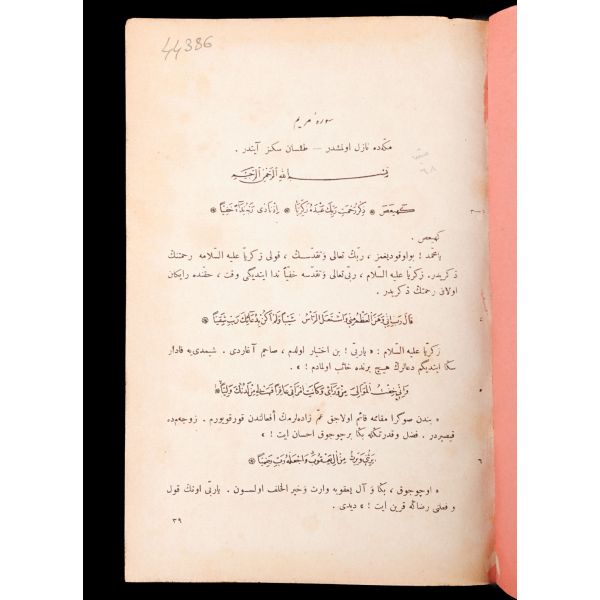 44386
سورهٔ مریم
مکه‌ده نازل اولمشدر — طقسان سکز آیتدر .
بسم الله الرحمن الرحیم
كهيعص * ذكر رحمت ربك عبده زكريا * اذ نادى ربه نداء خفيا *
كهيعص .
یا محمد ! بو اوقودیغمز ، ربك تعالی و تقدسك ، قولی زكریا علیه السلامه رحمتنك
ذكریدر. زكریا علیه السلام ، ربی تعالی و تقدسه خفیاً ندا ایتدیگی وقت ، حقنده رایكان
اولانی رحمتك ذكریدر.
قال رب اني وهن العظم مني واشتعل الرأس شيبا ولم اكن بدعائك رب شقيا *
زكریا علیه السلام : « یاربی ! بن اختیار اولدم ، صاچم آغاردی . شیمدی‌یه قادار
سكا ایتدیگم دعالرك هیچ برنده خائب اولمادم ! » .
واني خفت الموالي من ورائي وكانت امرأتي عاقرا فهب لي من لدنك وليا *
« بندن صوكرا مقامه قائم اولاجق عم زاده‌لرمك أفعالندن قورقویورم . زوجه‌م‌ده
قیصیردر . فضل و قدرتكله بكا بر چوجوق احسان ایت ! »
يرثني ويرث من آل يعقوب واجعله رب رضيا *
« او چوجوق ، بكا و آل یعقوبه وارث و خیر الخلف اولسون . یاربی اونك قول
و فعلنی رضاكه قرین ایت ! » دیدی .
٣٩